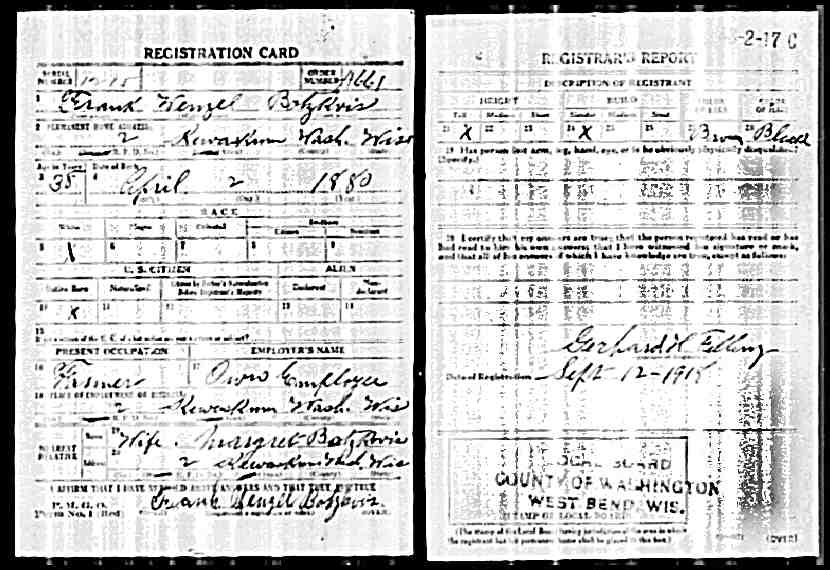 REGISTRATION CARD
SERIAL NUMBER
ORDER NUMBER
1 Frank Wenzel
2 PERMANENT HOME ADDRESS
2 Kewaskum Wash. Wis
Age in Years Date of Birth
3 38 4 April 2 1880
RACE
White Negro Oriental Indian
Citizen
5 X 6 7 8 9
U. S. CITIZEN ALIEN
Native Born Naturalized Declarant Non-declarant
10 X 11 12 13 14
15
PRESENT OCCUPATION EMPLOYER'S NAME
16 Farmer 17 Own Employer
18 PLACE OF EMPLOYMENT OR BUSINESS
2 Kewaskum Wash. Wis
NEAREST RELATIVE
Name 19 Wife Margret
Address 20 2 Kewaskum Wis
I AFFIRM THAT I HAVE VERIFIED ABOVE ANSWERS AND THAT THEY ARE TRUE
P. M. G. O.
Form No. 1 (Red)
Frank Wenzel
2-17 C
REGISTRAR'S REPORT
DESCRIPTION OF REGISTRANT
HEIGHT BUILD COLOR OF EYES COLOR OF HAIR
Tall Medium Short Slender Medium Stout
21 X 22 23 24 X 25 26 27 Brown 28 Black
29 Has person lost arm, leg, hand, eye, or is he obviously physically disqualified?
(Specify.)
30 I certify that my answers are true; that the person registered has read or has
had read to him his own answers; that I have witnessed his signature or mark,
and that all of his answers of which I have knowledge are true, except as follows:
Gerhard H.
Date of Registration Sept 12-1918
LOCAL BOARD
COUNTY OF WASHINGTON
WEST BEND, WIS.
(STAMP OF LOCAL BOARD)
(The stamp of the Local Board having jurisdiction of the area in which
the registrant has his permanent home shall be placed in this box.)
(OVER)